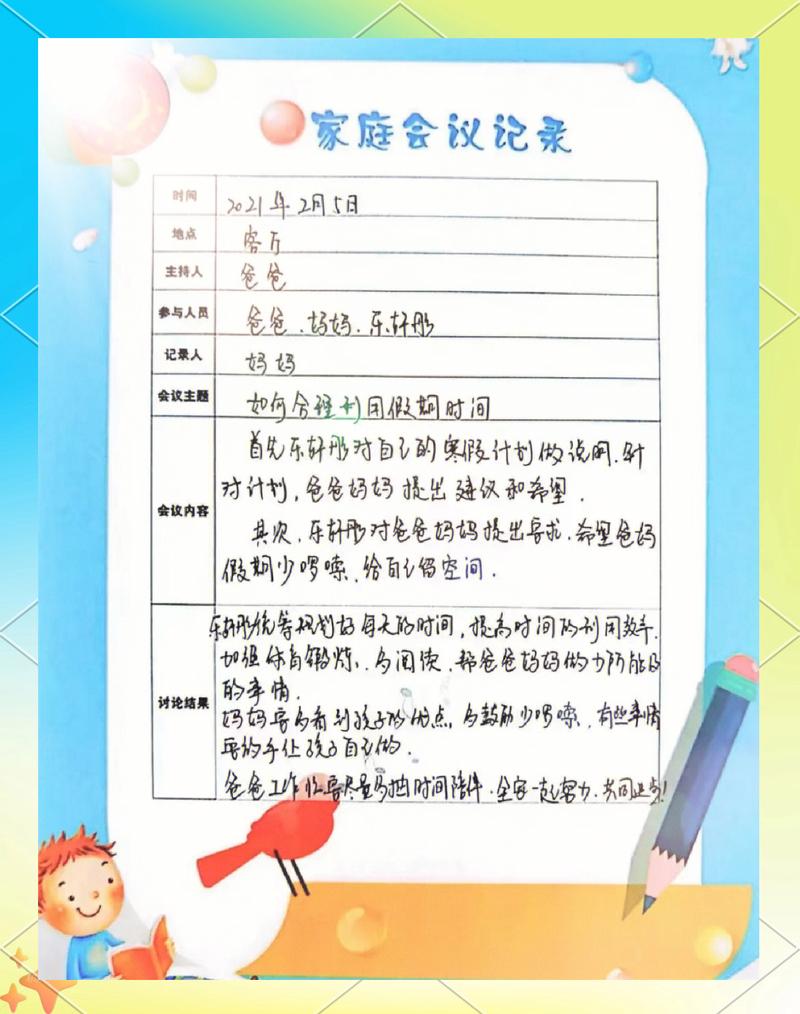 家庭会议记录
时间 2021年2月5日
地点 客厅
主持人 爸爸
参与人员 爸爸、妈妈、乐轩彤
记录人 妈妈
会议主题 如何合理利用假期时间
会议内容
首先乐轩彤对自己的寒假计划做说明.针
对计划,爸爸妈妈提出建议和希望.
其次、乐轩彤对爸爸妈妈提出要求.希望爸妈
假期少啰嗦、给自己留空间.
讨论结果
乐轩彤统筹规划好每天的时间,提高时间的利用效率.
加强体育锻炼、多阅读、帮爸爸妈妈做力所能及
的事情.
妈妈要多看到孩子的优点,多鼓励少啰嗦、有些事情
要放手让孩子自己做.
爸爸工作忙要尽量多抽时间陪伴.全家一起努力、共同进步!